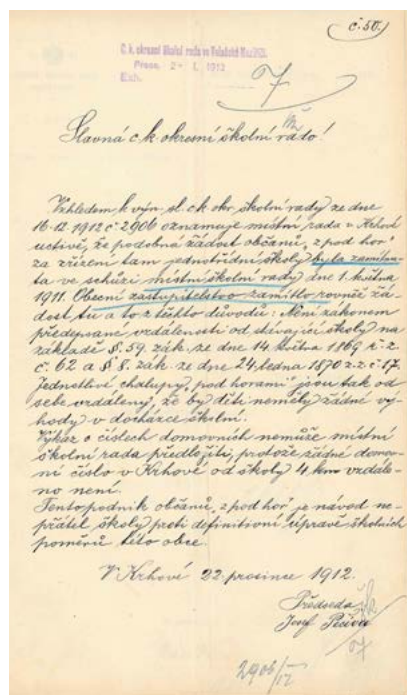 č. 50.
C. k. okresní školní rada ve Valašské Meziříčí.
Praes. 2 - I. 1913
Exh.
7
Slavná c. k. okresní školní rado!
Vzhledem k výn. sl. c. k. okr. školní rady ze dne
16. 12. 1912 č. 2906 oznamuje místní rada v Krhové
uctivě, že podobná žádost občanů „z pod hor"
za zřízení tam jednotřídní školy byla zamítnu-
ta ve schůzi místní školní rady dne 1. května
1911. Obecní zastupitelstvo zamítlo rovněž žá-
dost tu a to z těchto důvodů: Není zákonem
předepsané vzdálenosti od stávající školy na
základě §. 59. zák. ze dne 14. května 1869 ř. z.
č. 62 a § 8. zák. ze dne 24. ledna 1870 z. z. č. 17.
Jednotlivé chalupy „pod horami" jsou tak od
sebe vzdáleny, že by děti neměly žádné vý-
hody v docházce školní.
Výkaz o číslech domovních nemůže místní
školní rada předložiti, protože žádné domov-
ní číslo v Krhové od školy 4 km vzdále-
no není.
Tento podnik občanů „z pod hor" je návod ne-
přátel školy proti definitivní úpravě školních
poměrů této obce.
V Krhové 22. prosince 1912.
Předseda
Josef
2906/12